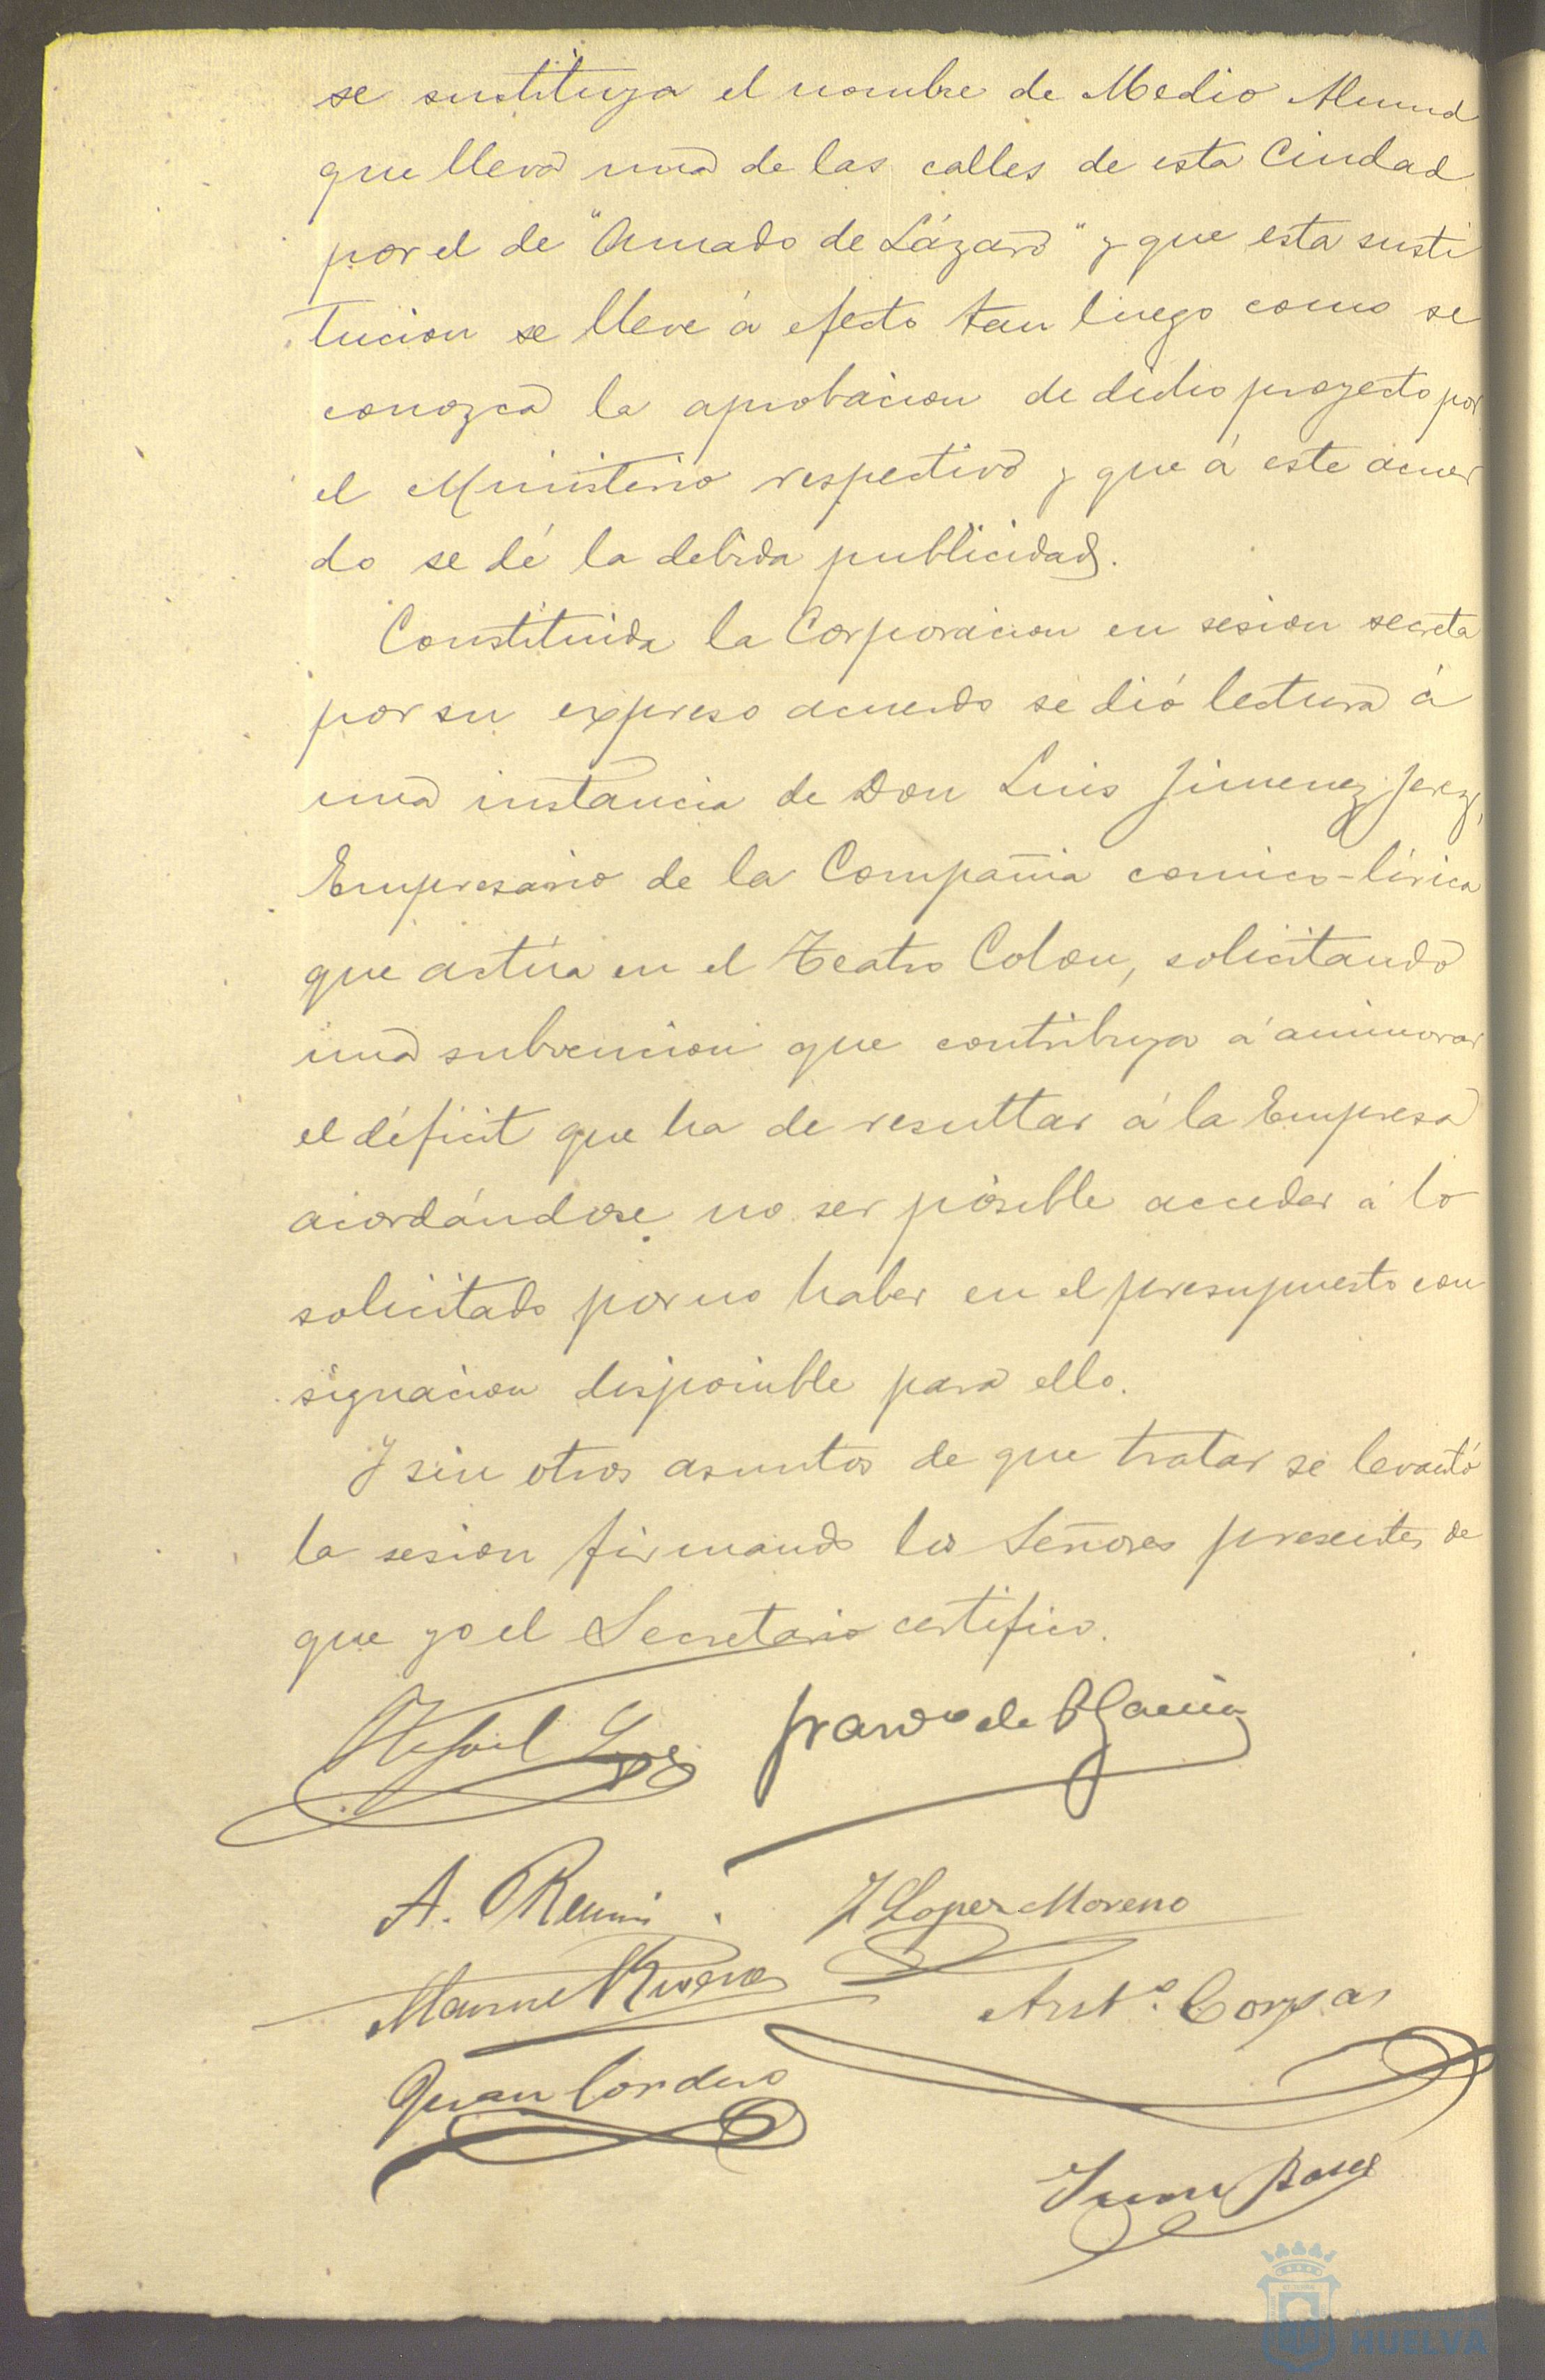 se sustituya el nombre de Medio Almud
que lleva una de las calles de esta Ciudad
por el de "Amado de Lázaro" y que esta susti
tucion se lleve á efecto tan luego como se
conozca la aprobacion de dicho proyecto por
el Ministerio respectivo y que á este acuer
do se dé la debida publicidad.
Constituida la Corporacion en sesion secreta
por su expreso acuerdo se dió lectura á
una instancia de Don Luis Jimenez Jerez,
Empresario de la Compañia comico-lírica
que actúa en el Teatro Colon, solicitando
una subvencion que contribuya á aminorar
el déficit que ha de resultar á la Empresa
acordándose no ser posible acceder á lo
solicitado por no haber en el presupuesto con
signacion disponible para ello.
Y sin otros asuntos de que tratar se levantó
la sesion firmando los Señores presentes de
que yo el Secretario certifico.
de P García
A.
J Lopez Moreno
Manuel
Antº. Corpas
Juan Cordero
HUELVA